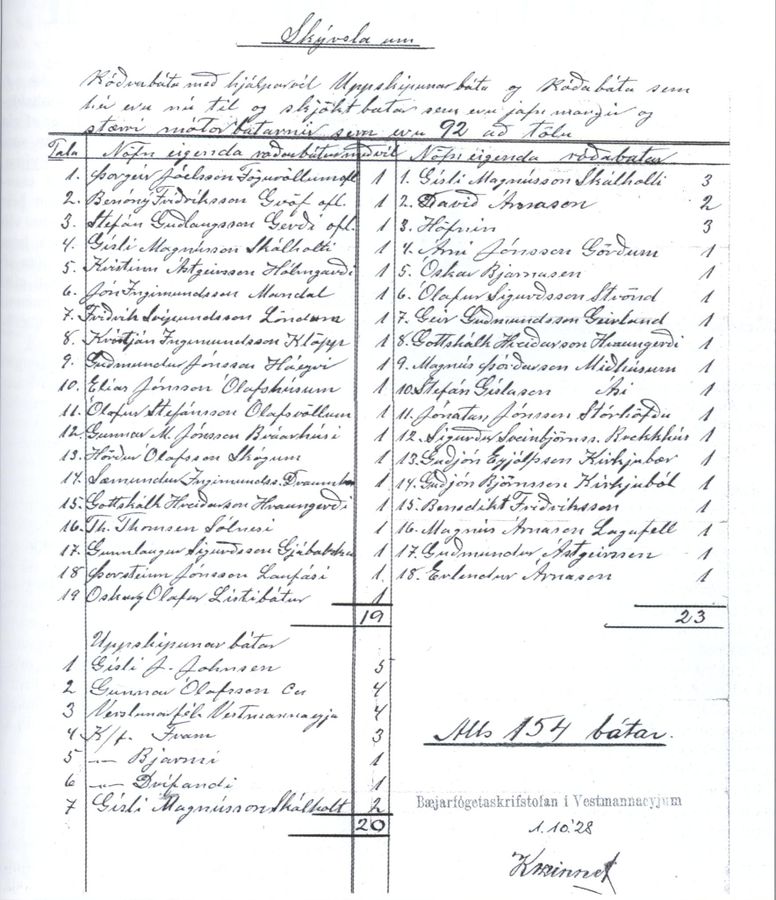 Skýrsla um
Róðrabáta með hjálparvél Uppskipunar báta og Róðabáta sem
hér eru nú til og skjökt batar sem eru jafn margir og
stærri mótorbatarnir sem eru 92 að tölu
Tala Nöfn eigenda roðrabátur með vél Nöfn eigenda róðabatar
1. Þorgeir Jóelsson Fögruvöllum ofl 1
2. Benóný Friðriksson Gröf ofl. 1
3. Stefán Guðlaugsson Gerði ofl. 1
4. Gísli Magnússon Skálholti 1
5. Kristinn Ástgeirsson Hólmgarði 1
6. Jón Ingimundsson Mandal 1
7. Friðrik Svipmundsson Löndum 1
8. Kristján Ingimundsson Klöpp 1
9. Guðmundur Jónsson Háeyri 1
10. Elías Jónsson Olafshúsum 1
11. Ólafur Stefánsson Ólafsvöllum 1
12. Gunnar M. Jónsson Brúarhúsi 1
13. Hörður Olafsson Skógum 1
14. Sæmundur Ingimundss. 1
15. Gottskálk Hreiðarson Hraungerði 1
16. Th. Thomsen Sólnesi 1
17. Gunnlaugur Sigurðsson Gjábakka 1
18 Þorsteinn Jónsson Laufási 1
19 Oskar og Olafur Listibátur 1
19
1. Gísli Magnússon Skálholti 3
2. Davíð Árnason 2
3. Höfnin 3
4. Árni Jónsson Görðum 1
5. Óskar Bjarnasen 1
6. Ólafur Sigurðsson Strönd 1
7. Geir Guðmundsson Geirland 1
8. Gottskálk Hreiðarson Hraungerði 1
9. Magnús Þórðarson Miðhúsum 1
10. Stefán Gíslason Ási 1
11. Jónatan Jónsson Stórhöfða 1
12. Sigurður Sveinbjörnss. Brekkhús 1
13. Guðjón Eyjólfsson Kirkjubær 1
14. Guðjón Björnsson Kirkjuból 1
15. Benedikt Friðriksson 1
16. Magnús Árnason Lagafell 1
17. Guðmundur Ástgeirssen 1
18. Erlendur Árnason 1
23
Uppskipunar bátar
1 Gísli J. Johnsen 5
2 Gunnar Ólafsson Co 4
3 Verslunarfél. Vestmannaeyja 4
4 K/f. Fram 3
5 —"— Bjarmi 1
6 —"— Drífandi 1
7 Gísli Magnússon Skálholt 2
20
Alls 154 bátar.
Bæjarfógetaskrifstofan í Vestmannaeyjum
1.10.28